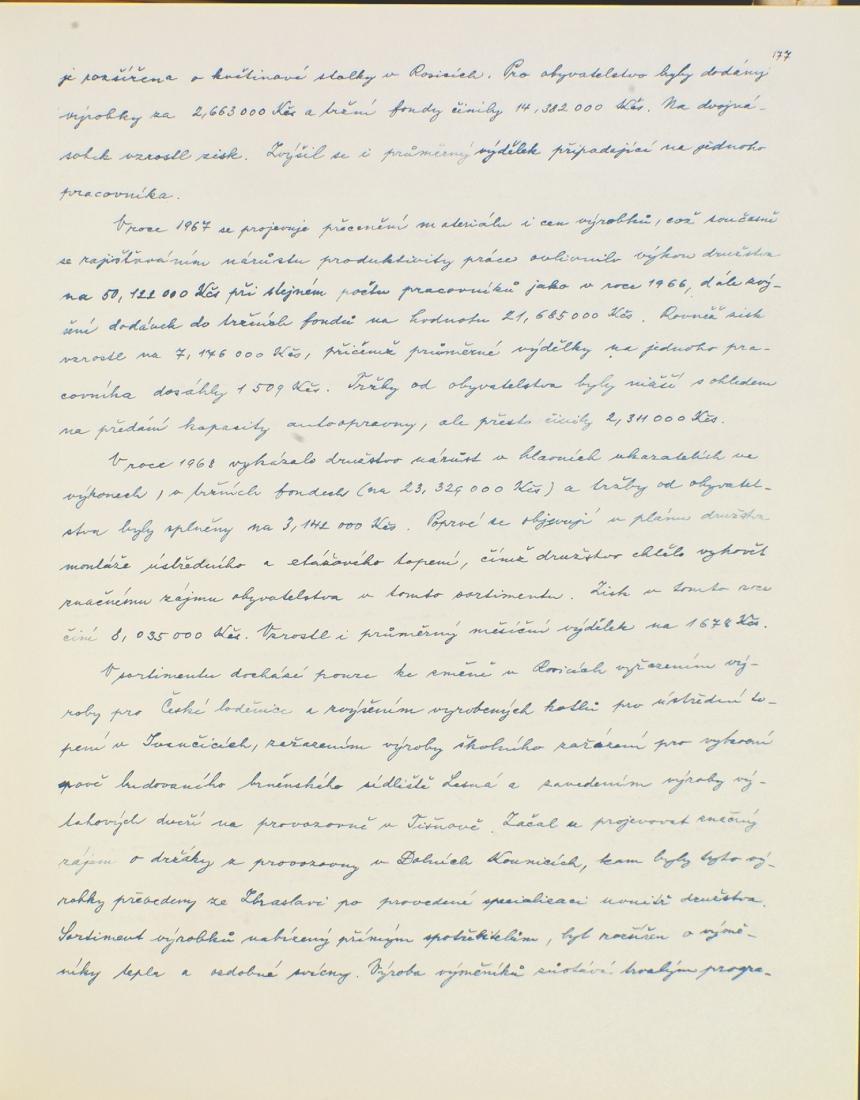 177
je rozšířena o květinové stolky v Rosicích. Pro obyvatelstvo byly dodány
výrobky za 2,663 000 Kčs a tržní fondy činily 14,382 000 Kčs. Na dvojná-
sobek vzrostl zisk. Zvýšil se i průměrný výdělek připadající na jednoho
pracovníka.
V roce 1967 se projevuje přecenění materiálu i cen výrobků, což současně
se zajišťováním nárůstu produktivity práce ovlivnilo výkon družstva
na 50,122 000 Kčs při stejném počtu pracovníků jako v roce 1966, dále zvý-
šení dodávek do tržních fondů na hodnotu 21,685 000 Kčs. Rovněž zisk
vzrostl na 7,146 000 Kčs, přičemž průměrné výdělky na jednoho pra-
covníka dosáhly 1 509 Kčs. Tržby od obyvatelstva byly nižší s ohledem
na předání kapacity autoopravny, ale přesto činily 2,311 000 Kčs.
V roce 1968 vykázalo družstvo nárůst v hlavních ukazatelích ve
výkonech, v tržních fondech (na 23,329 000 Kčs) a tržby od obyvatel-
stva byly splněny na 3,142 000 Kčs. Poprvé se objevují v plánu družstva
montáže ústředního a etážového topení, čímž družstvo chtělo vyhovět
značnému zájmu obyvatelstva v tomto sortimentu. Zisk v tomto roce
činí 8,035 000 Kčs. Vzrostl i průměrný měsíční výdělek na 1678 Kčs.
V sortimentu dochází pouze ke změně v Rosicích vyřazením vý-
roby pro České loděnice a zvýšením vyrobených kotlů pro ústřední to-
pení v Ivančicích, zařazením výroby školního zařízení pro vybavení
nově budovaného brněnského sídliště Lesná a zavedením výroby vý-
tahových dveří na provozovně v Tišnově. Začal se projevovat značný
zájem o držáky z provozovny v Dolních Kounicích, kam byly tyto vý-
robky převedeny ze Zbraslavi po provedené specializaci uvnitř družstva.
Sortiment výrobků nabízený přímým spotřebitelům, byl rozšířen o výmě-
níky tepla a ozdobné svícny. Výroba výměníků zůstává trvalým progra-